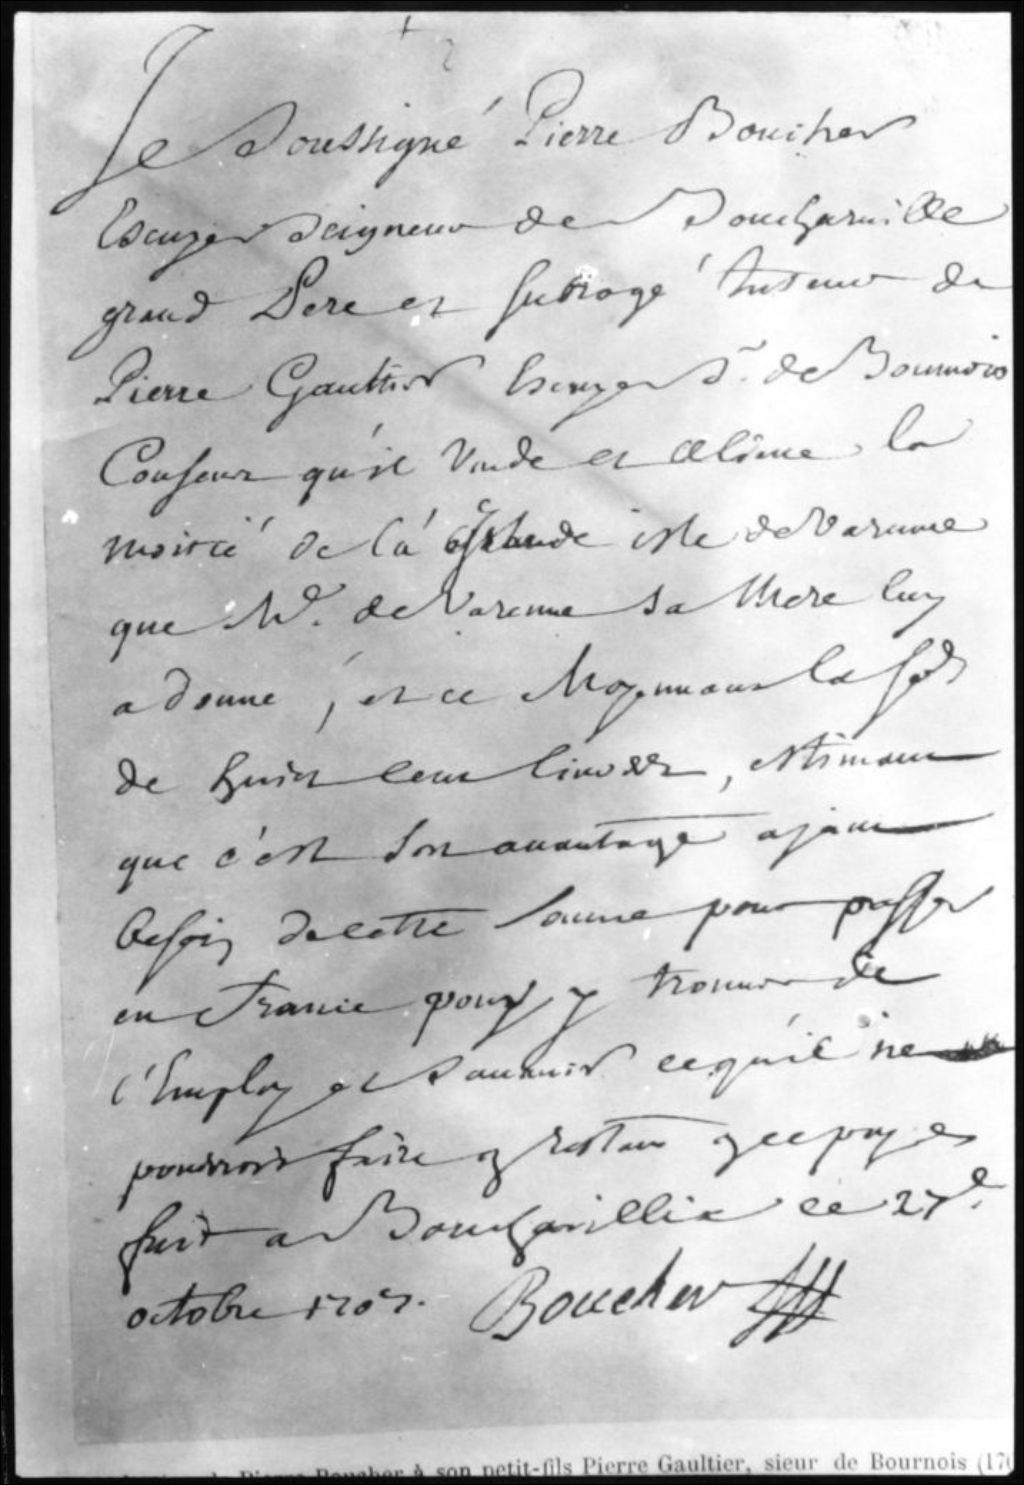 Je Soussigné Pierre Boucher
Escuyer Seigneur de Boucherville
grand Pere et subrogé Tuteur de
Pierre Gaultier Escuyer Sr. de Boumois
Consens qu'il Vende et aliene la
moitié de la grande isle de Varenne
que Me. de Varenne sa Mere luy
a donné, et ce Moyennant la some
de huit cent livres, estimant
que c'est son avantage ajant
besoin de cette somme pour passer
en France pour y trouver de
l'Employ et Sauenir ce qu'il ne
pourroit faire en restant en ce pays
fait a Boucherville ce 27e.
octobre 1707. Boucher
de Pierre Boucher à son petit-fils Pierre Gaultier, sieur de Bournois (170